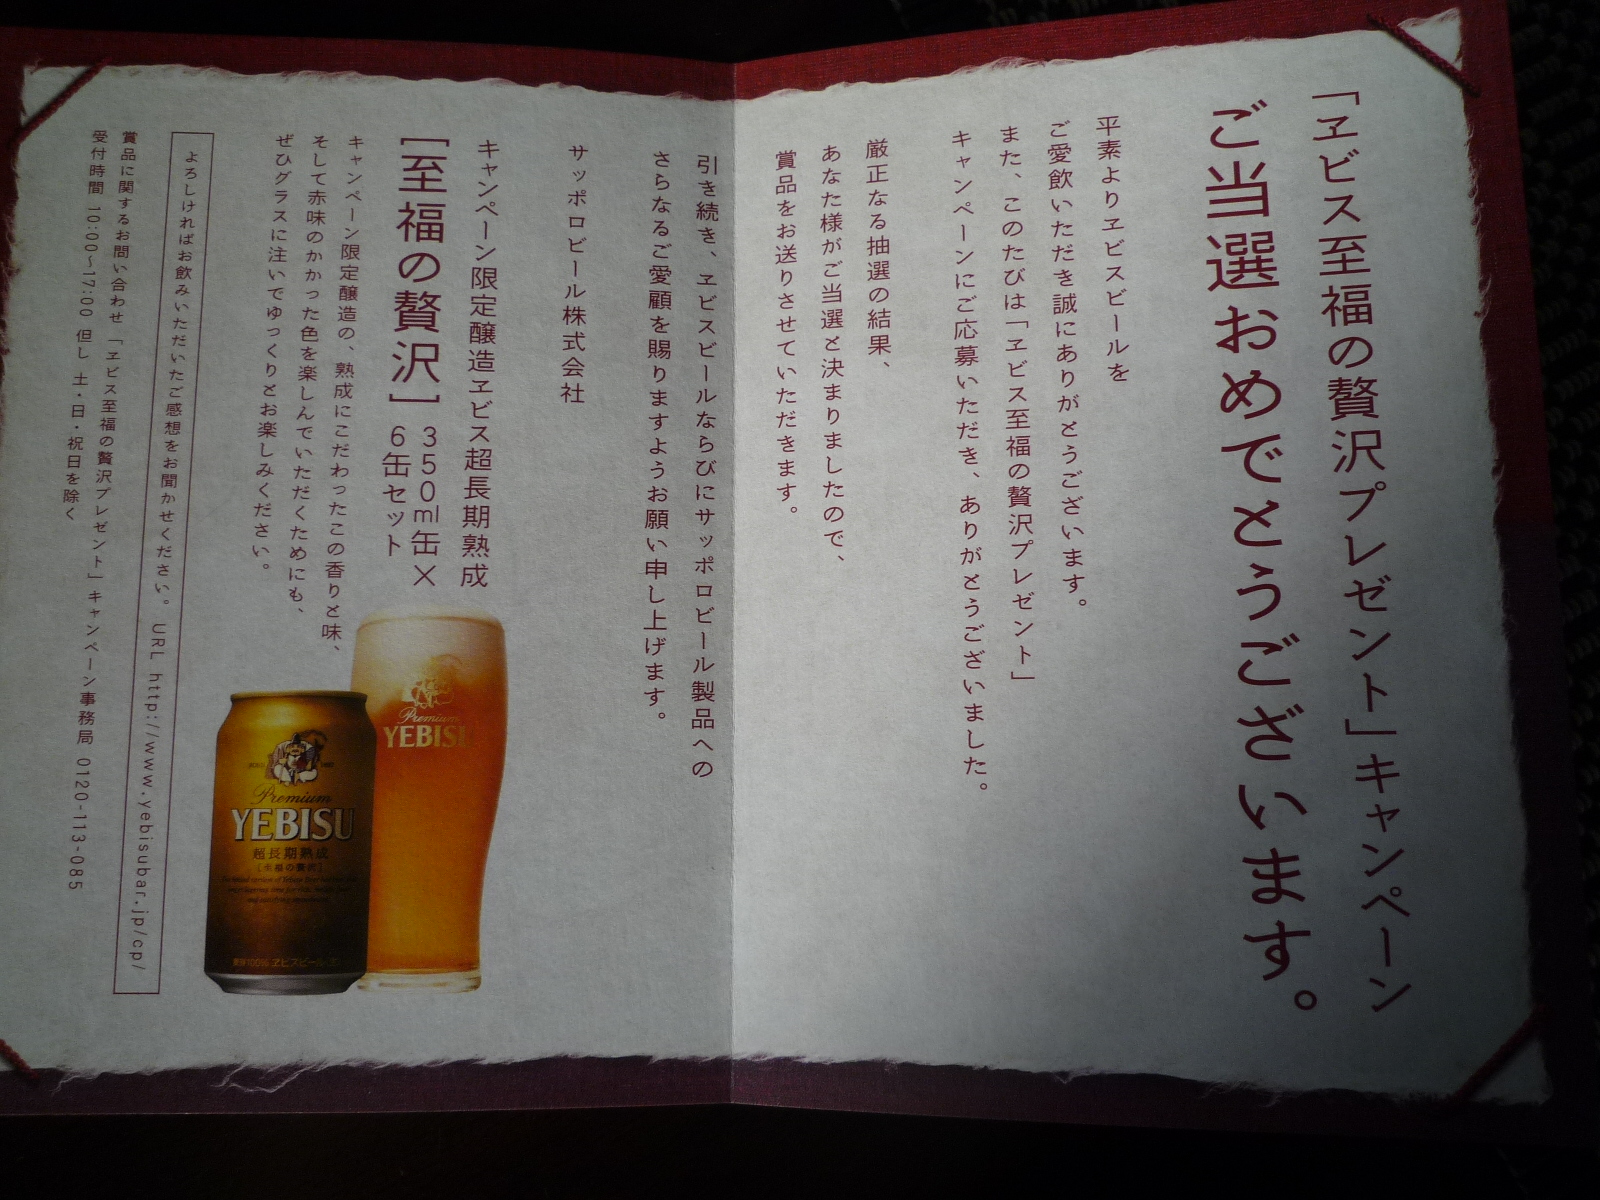 「ヱビス至福の贅沢プレゼント」キャンペーン
ご当選おめでとうございます。
平素よりヱビスビールを
ご愛飲いただき誠にありがとうございます。
また、このたびは「ヱビス至福の贅沢プレゼント」
キャンペーンにご応募いただき、ありがとうございました。
厳正なる抽選の結果、
あなた様がご当選と決まりましたので、
賞品をお送りさせていただきます。
引き続き、ヱビスビールならびにサッポロビール製品への
さらなるご愛顧を賜りますようお願い申し上げます。
サッポロビール株式会社
キャンペーン限定醸造ヱビス超長期熟成
［至福の贅沢］350ml缶×
6缶セット
キャンペーン限定醸造の、熟成にこだわったこの香りと味、
そして赤味のかかった色を楽しんでいただくためにも、
ぜひグラスに注いでゆっくりとお楽しみください。
よろしければお飲みいただいたご感想をお聞かせください。 URL http://www.yebisubar.jp/cp/
賞品に関するお問い合わせ 「ヱビス至福の贅沢プレゼント」キャンペーン事務局 0120-113-085
受付時間 10:00～17:00 但し 土・日・祝日を除く
Premium
YEBISU
Premium
YEBISU
超長期熟成
［至福の贅沢］